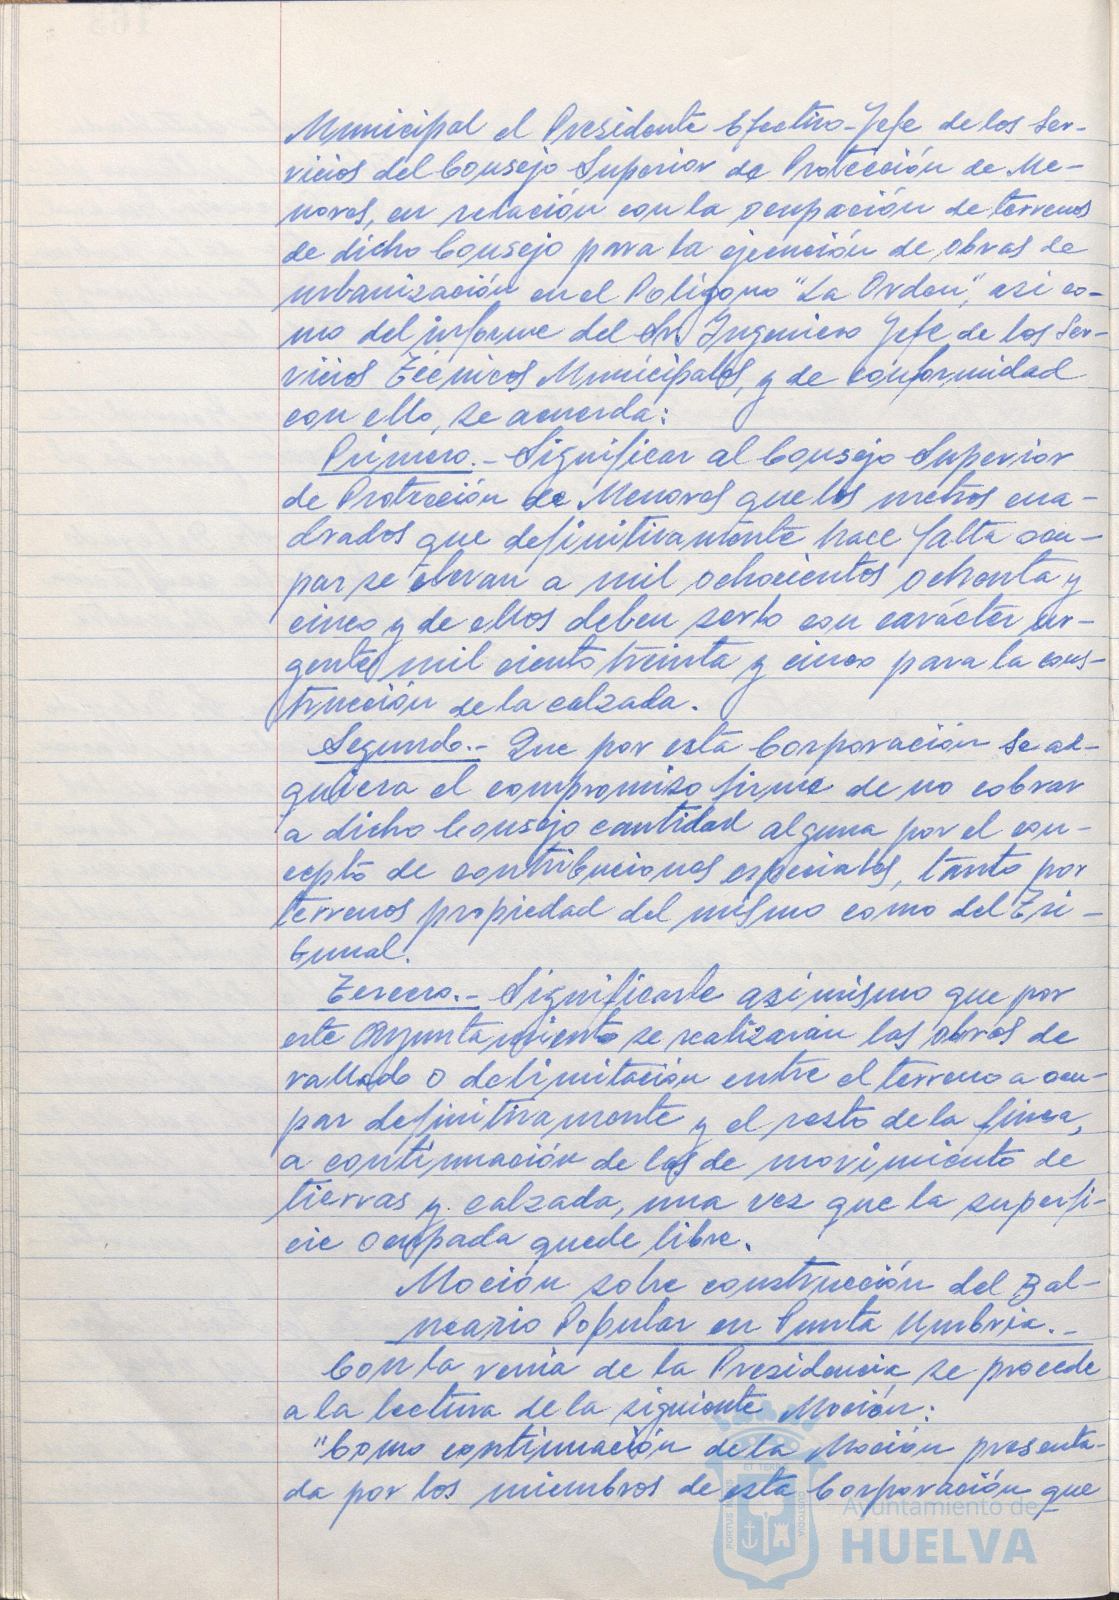 Municipal el Presidente Efectivo-Jefe de los Ser-
vicios del Consejo Superior de Protección de Me-
nores, en relación con la ocupación de terrenos
de dicho Consejo para la ejecución de obras de
urbanización en el Polígono "La Orden", asi co-
mo del informe del Sr. Ingeniero Jefe de los Ser-
vicios Técnicos Municipales, y de conformidad
con ello, se acuerda:
Primero.- Significar al Consejo Superior
de Protección de Menores que los metros cua-
drados que definitivamente hace falta ocu-
par se elevan a mil ochocientos ochenta y
cinco y de ellos deben serlo con carácter ur-
gente mil ciento treinta y cinco para la cons-
trucción de la calzada.
Segundo.- Que por esta Corporación se ad-
quiera el compromiso firme de no cobrar
a dicho Consejo cantidad alguna por el con-
cepto de contribuciones especiales, tanto por
terrenos propiedad del mismo como del Tri-
bunal.
Tercero.- Significarle asimismo que por
este Ayuntamiento se realizarán las obras de
vallado o delimitación entre el terreno a ocu-
par definitivamente y el resto de la finca,
a continuación de las de movimiento de
tierras y calzada, una vez que la superfi-
cie ocupada quede libre.
Moción sobre construcción del Bal-
neario Popular en Punta Umbría.-
Con la venia de la Presidencia se procede
a la lectura de la siguiente Moción:
"Como continuación de la Moción presenta-
da por los miembros de esta Corporación que
Ayuntamiento de
HUELVA